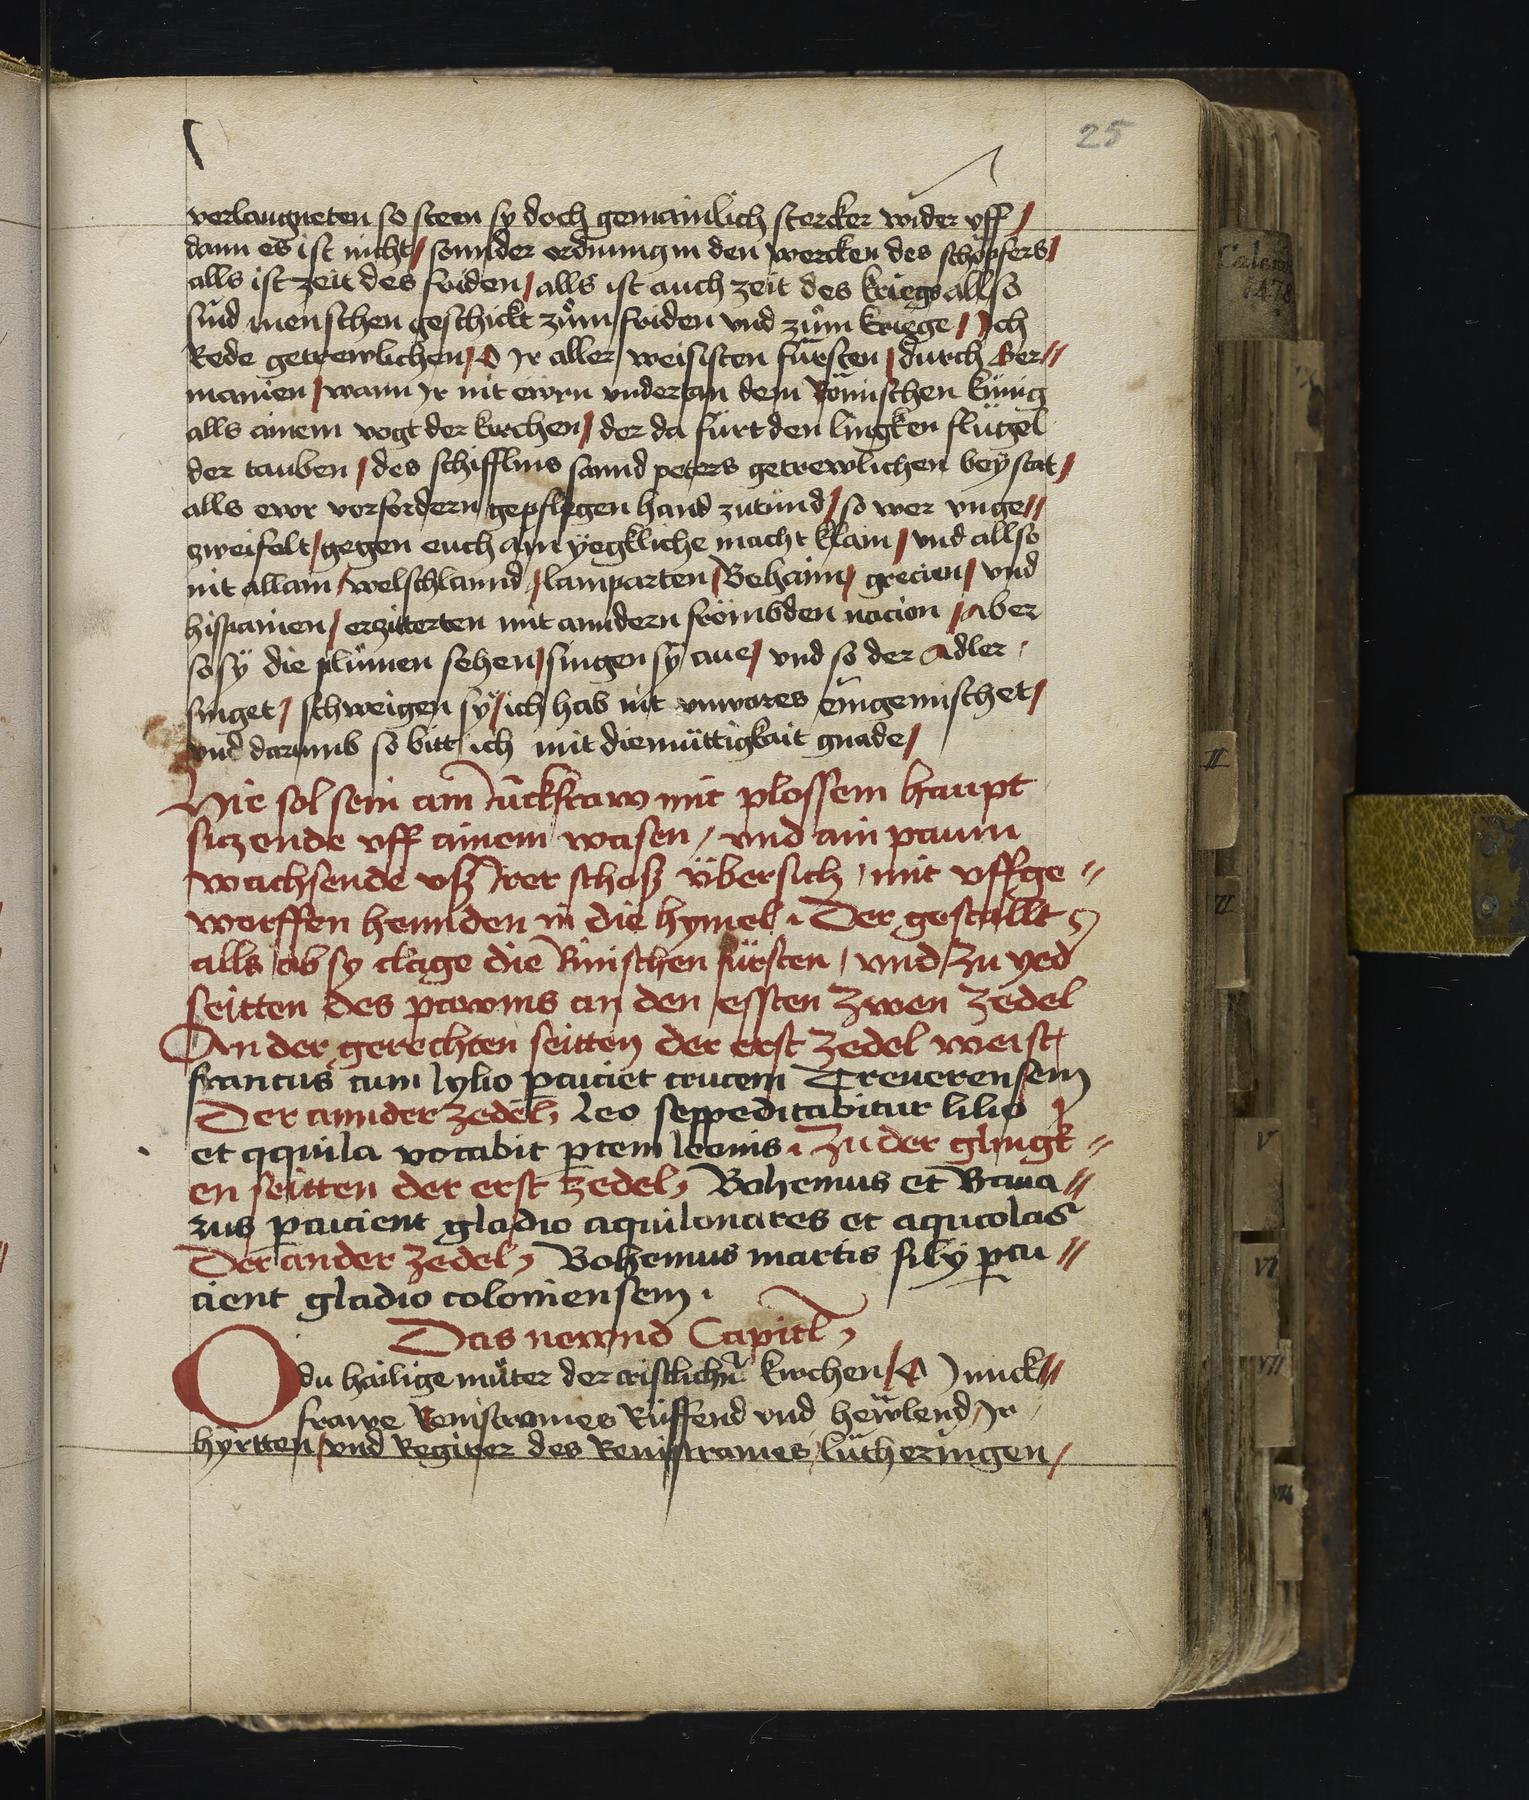 25
verlaugneten so steen sy doch gemainlich stercker wider vff /
dann es ist nicht / sonnder ordnung in den wercken des schöpfers /
alls ist zeit des friden / alls ist auch zeit des kriegs allso
sind menschen geschickt zům friden vnd zům kriege / Ich
Rede getrewlichen / O Ir aller weisisten fürsten / durch Ger //
manien / wann Ir nit ewrn vndertan dem Römischen künig
alls ainem vogt der kirchen / der da fürt den lingken flügel
der tauben / des schifflins sannd peters getrewlichen beystat /
alls ewr vorfordern gepflegen hand zutünd / so wer vnge //
zweifelt / gegen euch ain yegkliche macht klain / vnd allso
nit allain / welschlannd / lamparten / Behaim / grecien / vnd
hispanien / erzitterten mit anndern frömbden nacion / aber
so sy die plůmen sehen / singen sy aue / vnd so der Adler
singet / schweigen sy / ich hab nit vnwares eingemischet /
vnd darumb so bitt ich mit diemüttigkait gnade /
Hie sol sein ain Junckfraw mit plossem haupt
sitzende vff ainem wasen / vnd ain paum
wachsende vsz Irer schosz übersich / mit vffge //
worffen hennden in die hymel . Der gestallt
alls ob sy clage die Rinischen fürsten / vnd zu yed
seitten des pawms an den essten zwen zedel
An der gerechten seitten der erst zedel weist
francus cum lylio pcuciet crucem Treuerensem
Der annder zedel, Leo seppeditabitur lilio
et aquila vocabit ptem leonis . Zu der glingk //
en seitten der erst zedel, Bohemus et Baua //
rus pcucient gladio aquilonares et aqucolas
Der ander zedel, Bohemus martis filÿ pcu //
cient gladio coloniensem .
Das newnd Capitl,
O du hailige můter der cristlichn kirchen / O Junck //
frawe Renistromes Rüffend vnd hewlend, Ir
hyrtten / vnd Regirer des Renistrames / lutheringen /
Calen
1478
II
V
VI
VII